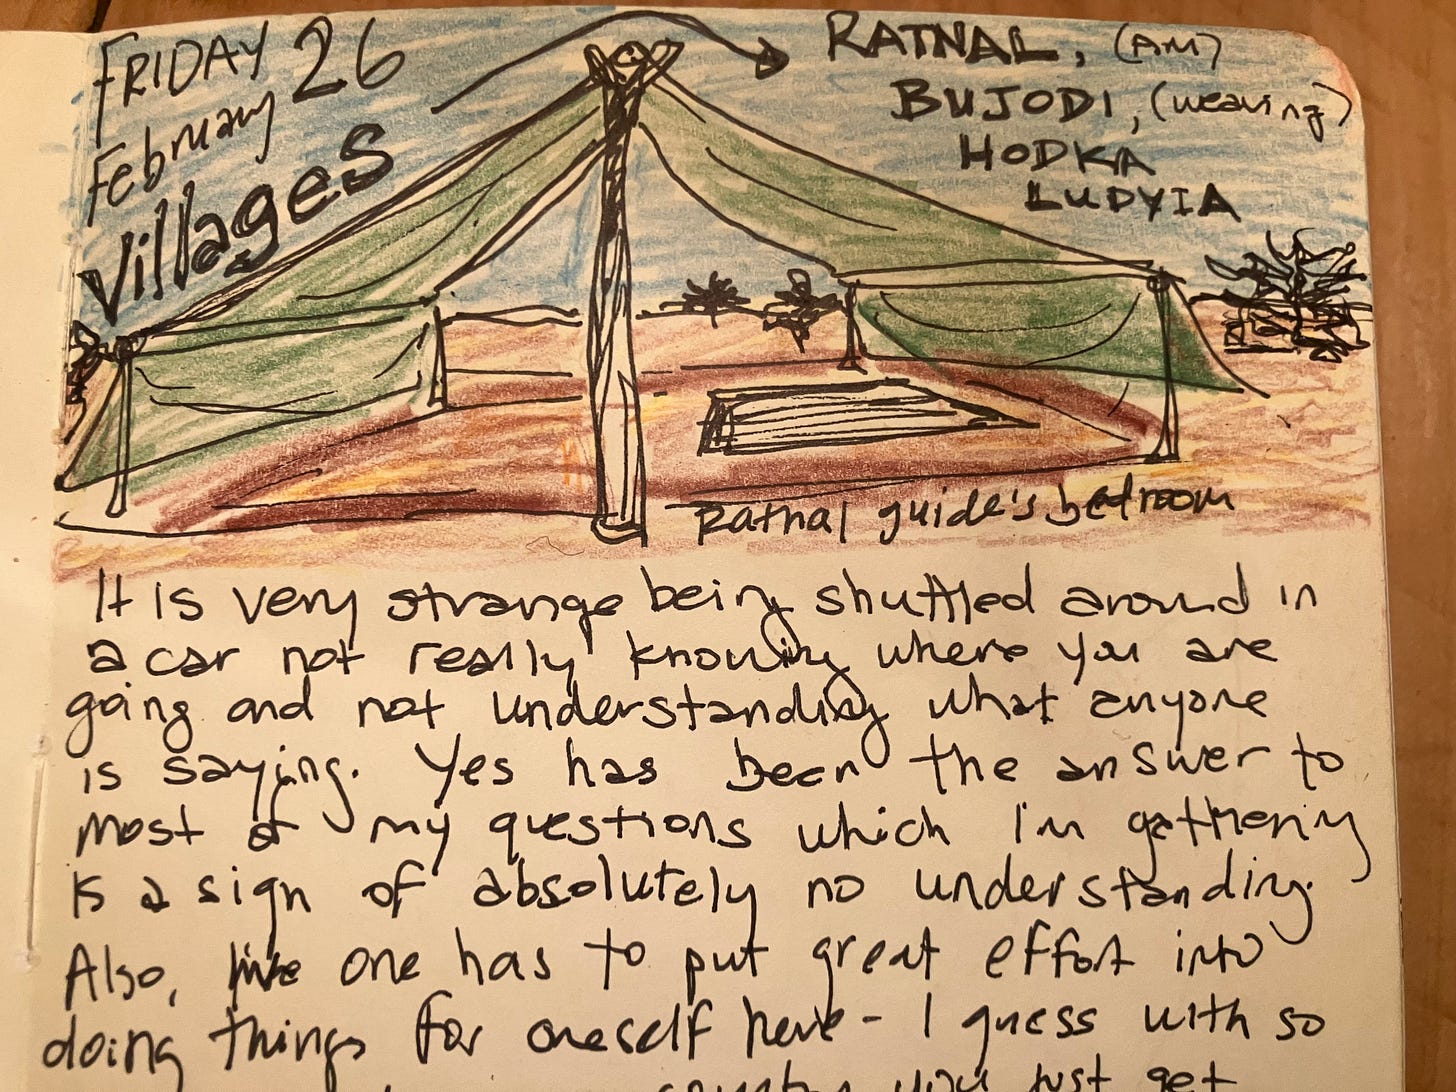 FRIDAY 26
February
Villages
RATNAL, (AM)
BUJODI, (weaving)
HODKA
LUDYIA
Ratnal guide's bedroom
It is very strange being shuttled around in
a car not really knowing where you are
going and not understanding what anyone
is saying. Yes has been the answer to
most of my questions which I'm gathering
is a sign of absolutely no understanding.
Also, one has to put great effort into
doing things for oneself here - I guess with so
country you just get